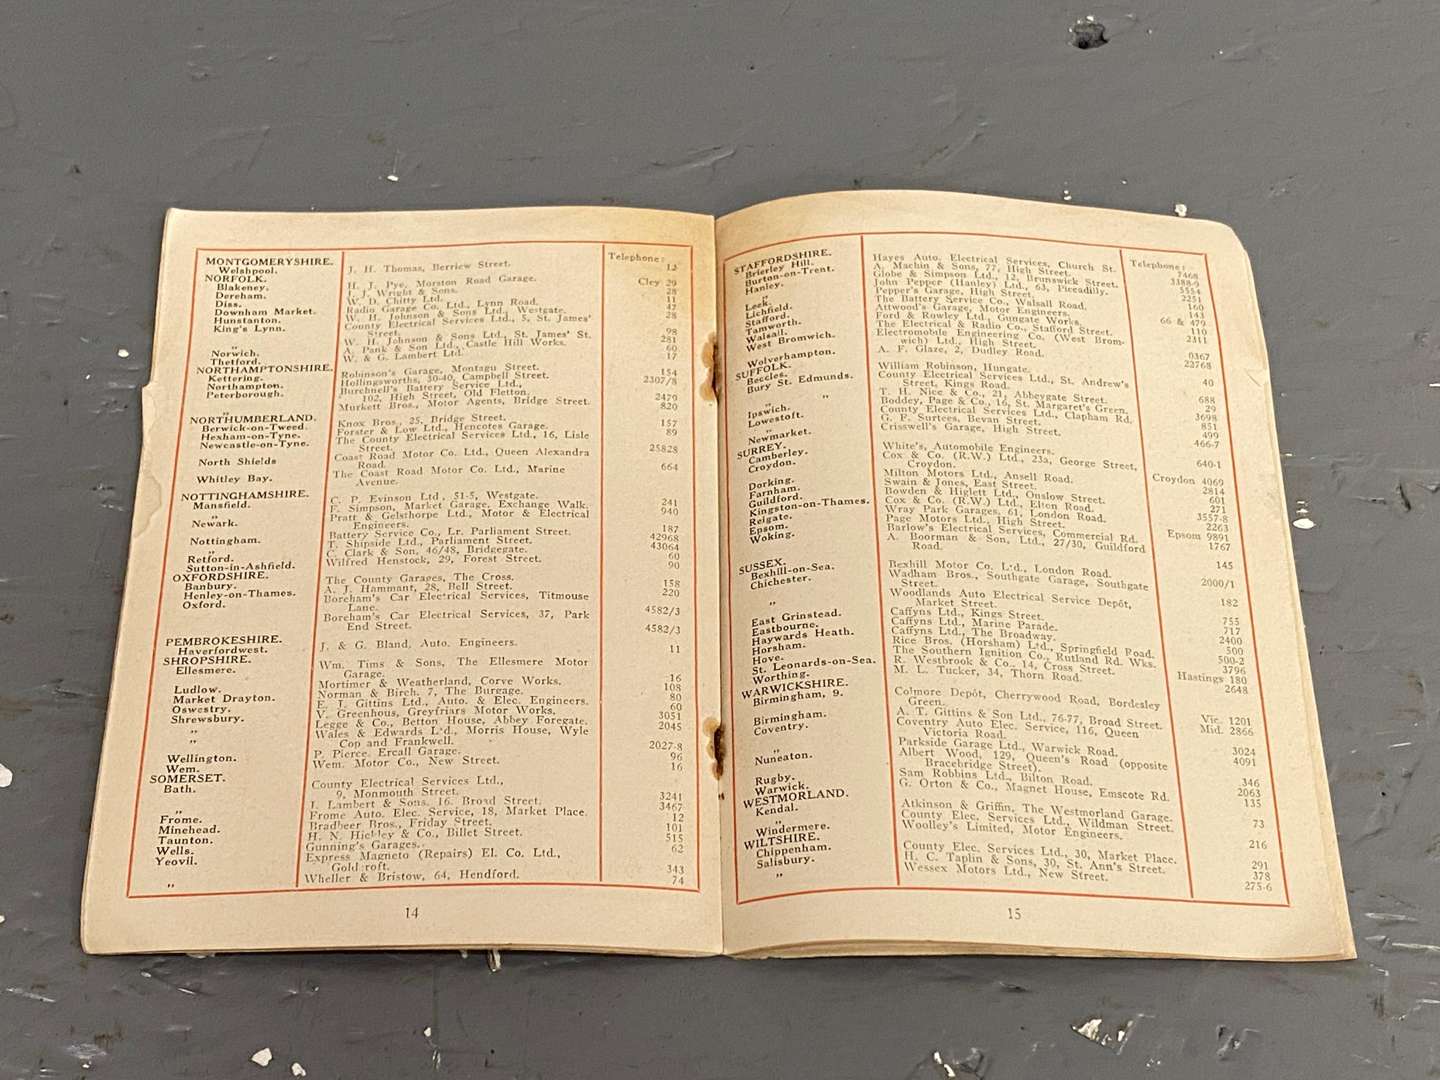 Telephone:
MONTGOMERYSHIRE.
Welshpool. J. H. Thomas, Berriew Street. 12
NORFOLK.
Blakeney. H. J. Pye, Morston Road Garage. Cley 29
Dereham. J. J. Wright & Sons. 28
Diss. W. D. Chitty Ltd. 11
Downham Market. Radio Garage Co. Ltd., Lynn Road. 47
Hunstanton. W. H. Johnson & Sons Ltd., Westgate. 28
King's Lynn. County Electrical Services Ltd., 5, St. James'
Street. 98
„ W. H. Johnson & Sons Ltd., St. James' St. 281
Norwich. A. Pank & Son Ltd., Castle Hill Works. 60
Thetford. W. & G. Lambert Ltd. 17
NORTHAMPTONSHIRE.
Kettering. Robinson's Garage, Montagu Street. 154
Northampton. Hollingsworths, 30-40, Campbell Street. 2307/8
Peterborough. Burchnell's Battery Service Ltd.,
102, High Street, Old Fletton. 2479
„ Murkett Bros., Motor Agents, Bridge Street. 820
NORTHUMBERLAND.
Berwick-on-Tweed. Knox Bros., 25, Bridge Street. 157
Hexham-on-Tyne. Forster & Low Ltd., Hencotes Garage. 89
Newcastle-on-Tyne. The County Electrical Services Ltd., 16, Lisle
Street. 25828
North Shields Coast Road Motor Co. Ltd., Queen Alexandra
Road. 664
Whitley Bay. The Coast Road Motor Co. Ltd., Marine
Avenue.
NOTTINGHAMSHIRE.
Mansfield. C. P. Evinson Ltd., 51-5, Westgate. 241
„ F. Simpson, Market Garage, Exchange Walk. 940
Newark. Pratt & Gelsthorpe Ltd., Motor & Electrical
Engineers. 187
Nottingham. Battery Service Co., Lr. Parliament Street. 42968
„ T. Shipside Ltd., Parliament Street. 43064
Retford. C. Clark & Son, 46/48, Bridgegate. 60
Sutton-in-Ashfield. Wilfred Henstock, 29, Forest Street. 90
OXFORDSHIRE.
Banbury. The County Garages, The Cross. 158
Henley-on-Thames. A. J. Hammant, 28, Bell Street. 220
Oxford. Boreham's Car Electrical Services, Titmouse
Lane. 4582/3
Boreham's Car Electrical Services, 37, Park
End Street. 4582/3
PEMBROKESHIRE.
Haverfordwest. J. & G. Bland, Auto. Engineers. 11
SHROPSHIRE.
Ellesmere. Wm. Tims & Sons, The Ellesmere Motor
Garage. 16
Ludlow. Mortimer & Weatherland, Corve Works. 108
Market Drayton. Norman & Birch, 7, The Burgage. 80
Oswestry. E. J. Gittins Ltd., Auto. & Elec. Engineers. 60
Shrewsbury. V. Greenhous, Greyfriars Motor Works. 3051
„ Legge & Co., Betton House, Abbey Foregate. 2045
„ Wales & Edwards Ltd., Morris House, Wyle
Cop and Frankwell. 2027-8
Wellington. P. Pierce, Ercall Garage. 96
Wem. Wem. Motor Co., New Street. 16
SOMERSET.
Bath. County Electrical Services Ltd.,
9, Monmouth Street. 3241
„ J. Lambert & Sons, 16, Broad Street. 3467
Frome. Frome Auto. Elec. Service, 18, Market Place. 12
Minehead. Bradbeer Bros., Friday Street. 101
Taunton. H. N. Hickley & Co., Billet Street. 515
Wells. Gunning's Garages. 62
Yeovil. Express Magneto (Repairs) El. Co. Ltd.,
Goldcroft. 343
„ Wheller & Bristow, 64, Hendford. 74
14
Telephone:
STAFFORDSHIRE.
Brierley Hill. Hayes Auto. Electrical Services, Church St. 7468
Burton-on-Trent. A. Machin & Sons, 77, High Street. 3388-9
Hanley. Globe & Simpson Ltd., 12, Brunswick Street. 5554
„ John Pepper (Hanley) Ltd., 63, Piccadilly. 2251
Leek. Pepper's Garage, High Street. 143
Lichfield. The Battery Service Co., Walsall Road. 160
Stafford. Attwood's Garage, Motor Engineers. 66 & 479
Tamworth. Ford & Rowley Ltd., Gungate Works. 110
Walsall. The Electrical & Radio Co., Stafford Street. 2311
West Bromwich. Electromobile Engineering Co. (West Brom-
wich) Ltd., High Street. 0367
Wolverhampton. A. F. Glaze, 2, Dudley Road. 22768
SUFFOLK.
Beccles. William Robinson, Hungate. 40
Bury St. Edmunds. County Electrical Services Ltd., St. Andrew's
Street, Kings Road. 688
„ „ T. H. Nice & Co., 21, Abbeygate Street. 29
Ipswich. Boddey, Page & Co., 16, St. Margaret's Green. 3698
Lowestoft. County Electrical Services Ltd., Clapham Rd. 851
„ G. F. Surtees, Bevan Street. 499
Newmarket. Crisswell's Garage, High Street. 466-7
SURREY.
Camberley. White's, Automobile Engineers. 640-1
Croydon. Cox & Co. (R.W.) Ltd., 23a, George Street,
Croydon. Croydon 4069
Dorking. Milton Motors Ltd., Ansell Road. 2814
Farnham. Swain & Jones, East Street. 601
Guildford. Bowden & Higlett Ltd., Onslow Street. 271
Kingston-on-Thames. Cox & Co. (R.W.) Ltd., Elton Road. 3557-8
Reigate. Wray Park Garages, 61, London Road. 2263
Epsom. Page Motors Ltd., High Street. Epsom 9891
Woking. Barlow's Electrical Services, Commercial Rd. 1767
A. Boorman & Son, Ltd., 27/30, Guildford
Road. 145
SUSSEX.
Bexhill-on-Sea. Bexhill Motor Co. Ltd., London Road. 2000/1
Chichester. Wadham Bros., Southgate Garage, Southgate
Street. 182
„ Woodlands Auto Electrical Service Depôt,
Market Street. 755
East Grinstead. Caffyns Ltd., Kings Street. 717
Eastbourne. Caffyns Ltd., Marine Parade. 2400
Haywards Heath. Caffyns Ltd., The Broadway. 500
Horsham. Rice Bros. (Horsham) Ltd., Springfield Road. 500-2
Hove. The Southern Ignition Co., Rutland Rd. Wks. 3796
St. Leonards-on-Sea. R. Westbrook & Co., 14, Cross Street. Hastings 180
Worthing. M. L. Tucker, 34, Thorn Road. 2648
WARWICKSHIRE.
Birmingham, 9. Colmore Depôt, Cherrywood Road, Bordesley
Green. Vic. 1201
Birmingham. A. T. Gittins & Son Ltd., 76-77, Broad Street. Mid. 2866
Coventry. Coventry Auto Elec. Service, 116, Queen
Victoria Road. 3024
„ Parkside Garage Ltd., Warwick Road. 4091
Nuneaton. Albert Wood, 129, Queen's Road (opposite
Bracebridge Street). 346
Rugby. Sam Robbins Ltd., Bilton Road. 2063
Warwick. G. Orton & Co., Magnet House, Emscote Rd. 135
WESTMORLAND.
Kendal. Atkinson & Griffin, The Westmorland Garage. 73
„ County Elec. Services Ltd., Wildman Street.
Windermere. Woolley's Limited, Motor Engineers. 216
WILTSHIRE.
Chippenham. County Elec. Services Ltd., 30, Market Place. 291
Salisbury. H. C. Taplin & Sons, 30, St. Ann's Street. 378
„ Wessex Motors Ltd., New Street. 275-6
15